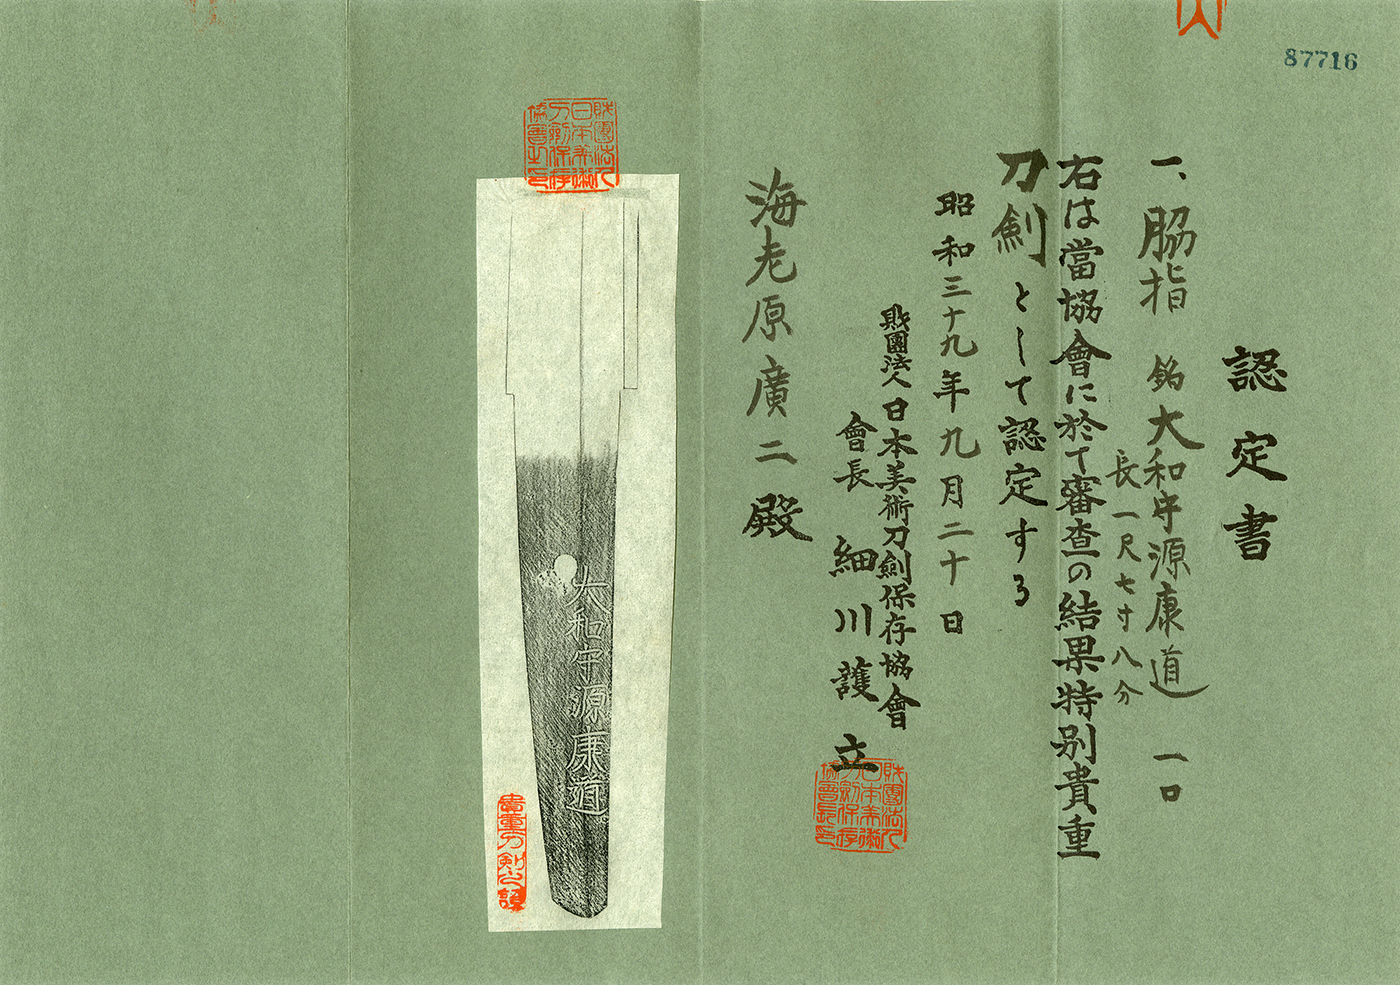 87716
認定書
一、脇指 銘大和守源康道 一口
長一尺七寸八分
右は當協會に於て審査の結果特別貴重
刀劍として認定する
昭和三十九年九月二十日
財團法人日本美術刀劍保存協會
會長 細川護立
財團法人日本美術刀劍保存協會長印
海老原廣二殿
財團法人日本美術刀劍保存協會之印
大和守源康道
貴重刀剣公認